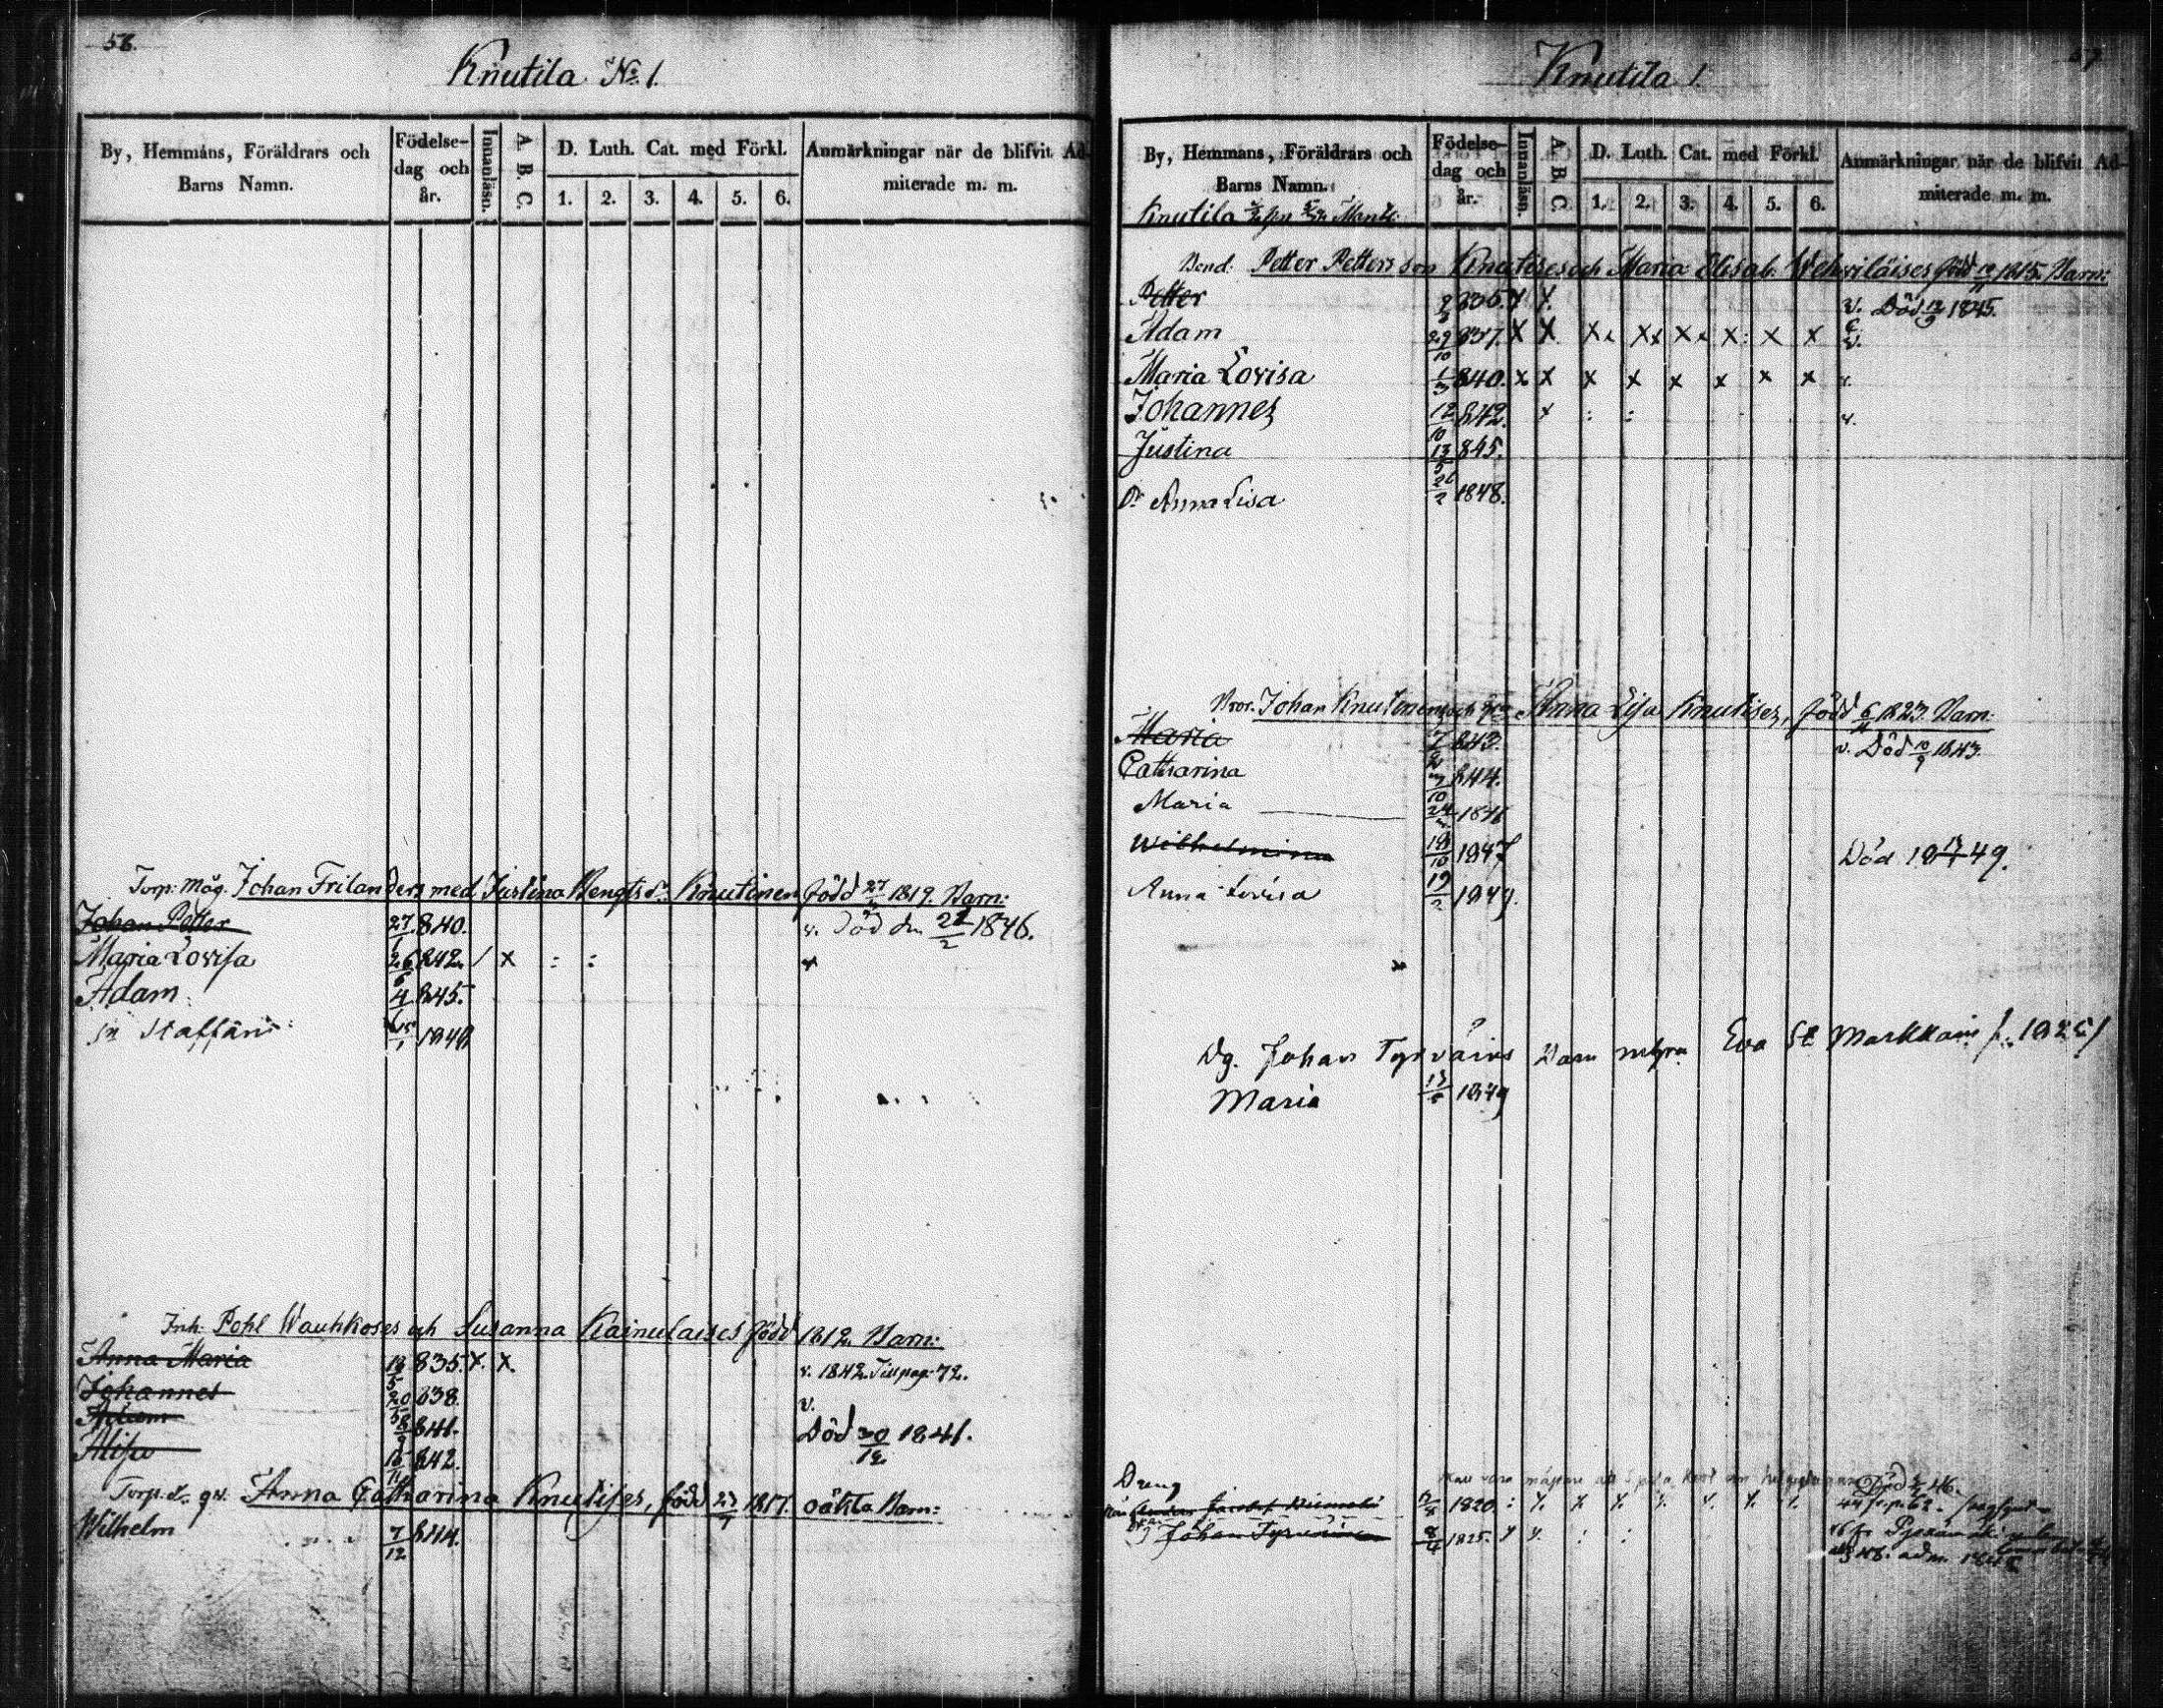 56.
Knutila No 1.
By, Hemmans, Föräldrars och Barns Namn.
Födelse-dag och år.
Innanläsn.
A. B. C.
D. Luth. Cat. med Förkl.
1. 2. 3. 4. 5. 6.
Anmärkningar när de blifvit Admiterade m. m.
Torp: Måg. Johan Frilanders med Justina Bengtsdr. Knutinen född 1819. Barn:
Johan Petter 27/1 840. v. Död den 2/2 1846.
Maria Lovisa 26/6 842. / x : :
Adam 4/ 845.
Staffan
Inh: Pohl Wauhkoses och Susanna Kainulaises född 1812. Barn:
Anna Maria 18/5 835. X. X. v. 1842. Till pag: 72.
Johannes 20/ 838. v.
Adam 841. Död 30/12 1841.
Alisa 16/11 842.
Torp. dr. qv. Anna Catharina Knutises, född 23/ 1817. oäkta Barn:
Wilhelm 7/12 844.
57
Knutila 1.
By, Hemmans, Föräldrars och Barns Namn.
Födelse-dag och år.
Innanläsn.
A. B. C.
D. Luth. Cat. med Förkl.
1. 2. 3. 4. 5. 6.
Anmärkningar när de blifvit Admiterade m. m.
Knutila Mantl:
Bond: Petter Pettersson Knutises och Maria Elisab. Wehviläises född 1815. Barn:
Petter 835. X X. v. Död 12/9 1845.
Adam 29/10 837. X X. x x x x x x x : x x v.
Maria Lovisa 1/3 840. x x x x x x x x v.
Johannes 12/10 842. x : : v.
Justina 13/5 845.
Dr Anna Lisa 2/2 1848.
Bror. Johan Knutinen och Anna Lisa Knutises, född 6/ 1823. Barn:
Maria 7/ 843. v. Död 10/9 1843.
Catharina 3/10 844.
Maria 24/ 1846
Wilhelmina 19/10 1847 Död 18 49.
Anna Lovisa 19/2 1849.
Dg. Johan Tyrväins Barn Eva Markkain f. 1825
Maria 13/ 1849
Dreng
1820. :
Johan Tyrväinen 1825. adm.